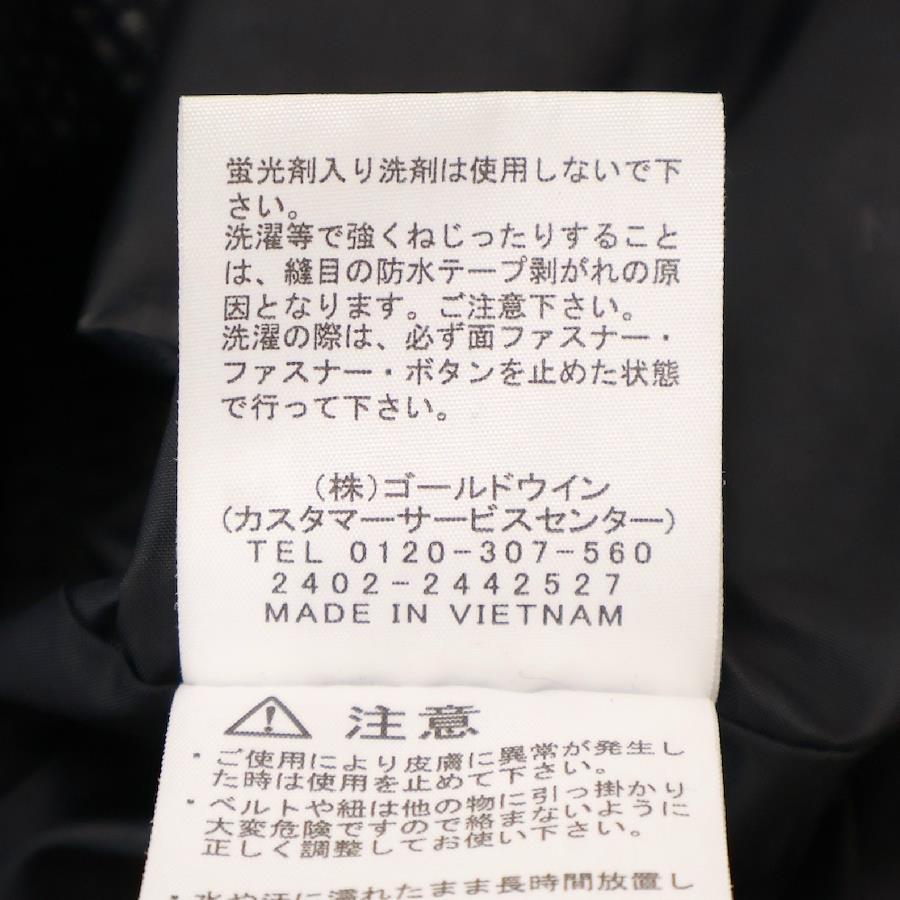 蛍光剤入り洗剤は使用しないで下
さい。
洗濯等で強くねじったりすること
は、縫目の防水テープ剥がれの原
因となります。ご注意下さい。
洗濯の際は、必ず面ファスナー・
ファスナー・ボタンを止めた状態
で行って下さい。
(株)ゴールドウイン
(カスタマーサービスセンター)
TEL 0120-307-560
2402-2442527
MADE IN VIETNAM
注意
・ご使用により皮膚に異常が発生し
た時は使用を止めて下さい。
・ベルトや紐は他の物に引っ掛かり
大変危険ですので絡まないように
正しく調整してお使い下さい。
・水や汗に濡れたまま長時間放置し